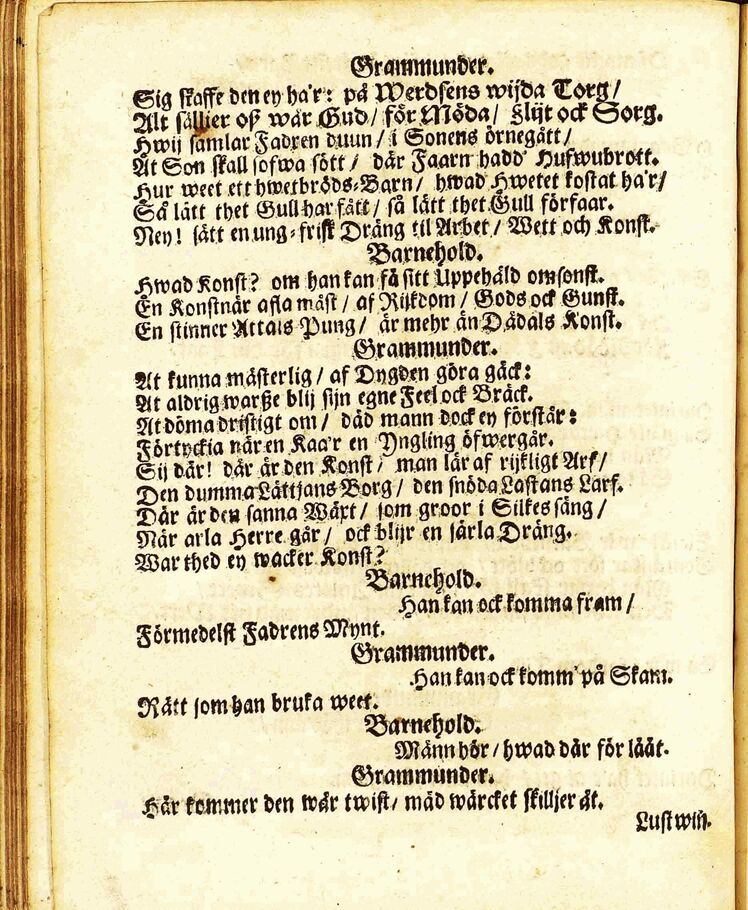 Grammunder.
Sig skaffe den ey ha'r: på Werdsens wijda Torg/
Alt sällier oß wår Gud/ för Möda/ Slijt ock Sorg.
Hwij samlar Fadren duun/ i Sonens örnegått/
At Son skall sofwa sött/ där Faarn hadd' Hufwubrott.
Hur weet ett hwetbröds-Barn/ hwad Hwetet kostat ha'r/
Så lätt thet Gull har fått/ så lätt thet Gull förfaar.
Ney! sätt en ung-frisk Dräng til Arbet/ Wett och Konst.
Barnehold.
Hwad Konst? om han kan få sitt Uppehåld omsonst.
En Konstnär afla mäst/ af Rijkdom/ Gods ock Gunst.
En stinner Attals Pung/ är mehr än Dädals Konst.
Grammunder.
At kunna mästerlig/ af Dygden göra gäck:
At aldrig warße blij sijn egne Feel ock Bräck.
At döma dristigt om/ däd mann dock ey förstår:
Förtyckia när en Kaa'r en Yngling öfwergår.
Sij där! där är den Konst/ man lär af rijkligt Arf/
Den dumma Lättjans Borg/ den snöda Lastans Larf.
Där är den sanna Wäxt/ som groor i Silkessäng/
När arla Herre går/ ock blijr en särla Dräng.
War thed ey wacker Konst?
Barnehold.
Han kan ock komma fram/
Förmedelst Fadrens Mynt.
Grammunder.
Han kan ock komm' på Skam.
Rätt som han bruka weet.
Barnehold.
Männ hör/ hwad där för låät.
Grammunder.
Här kommer den wår twist/ mäd wärcket skilljer åt.
Lustwin.